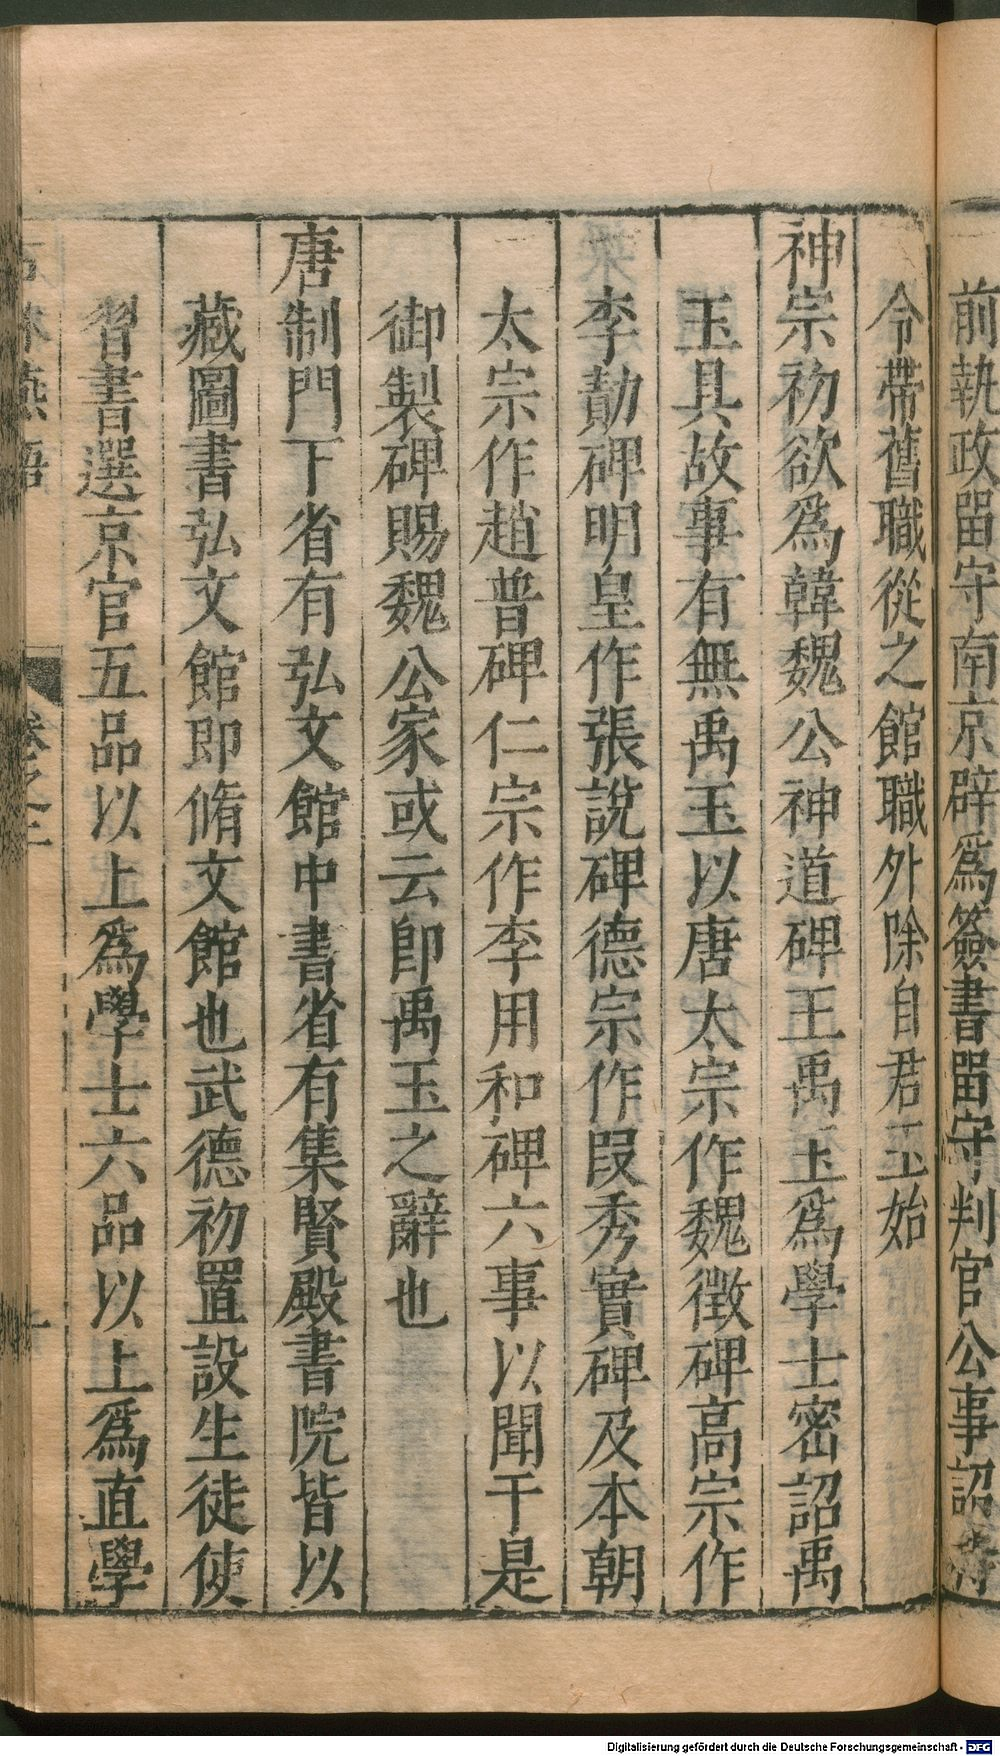 前執政留守南京辟爲簽書留守判官公事詔特
令帶舊職從之館職外除自君玉始
神宗初欲爲韓魏公神道碑王禹玉爲學士密詔禹
玉具故事有無禹玉以唐太宗作魏徵碑高宗作
李勣碑明皇作張說碑德宗作段秀實碑及本朝
太宗作趙普碑仁宗作李用和碑六事以聞于是
御製碑賜魏公家或云卽禹玉之辭也
唐制門下省有弘文館中書省有集賢殿書院皆以
藏圖書弘文館卽脩文館也武德初置設生徒使
習書選京官五品以上爲學士六品以上爲直學
石林燕語
卷之二
Digitalisierung gefördert durch die Deutsche Forschungsgemeinschaft - DFG